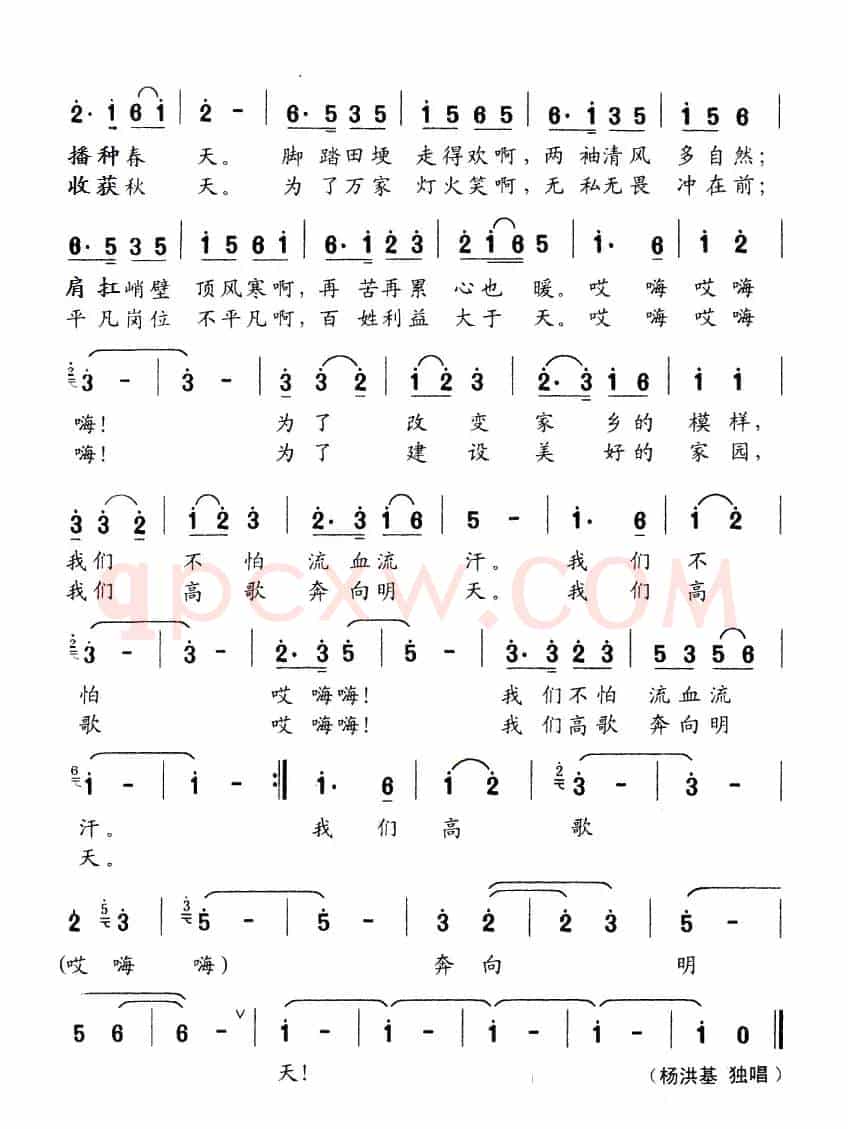 2· 1 6 1 | 2 - | 6· 5 3 5 | 1 5 6 5 | 6· 1 3 5 | 1 5 6 |
播种春 天。 脚 踏田埂 走得欢啊，两 袖清风 多自然；
收获秋 天。 为 了万家 灯火笑啊，无 私无畏 冲在前；
6· 5 3 5 | 1 5 6 1 | 6· 1 2 3 | 2 1 6 5 | 1· 6 | 1 2
肩 扛峭壁 顶风寒啊，再 苦再累 心也 暖。哎 嗨哎嗨
平 凡岗位 不平凡啊，百 姓利益 大于 天。哎 嗨哎嗨
2 3 - | 3 - | 3 3 2 | 1 2 3 | 2· 3 1 6 | 1 1 |
嗨！ 为了 改 变 家 乡的 模样，
嗨！ 为了 建 设 美 好的 家园，
3 3 2 | 1 2 3 | 2· 3 1 6 | 5 - | 1· 6 | 1 2
我们 不 怕 流 血流 汗。 我 们 不
我们 高 歌 奔 向明 天。 我 们 高
qpcxw.COM
2 3 - | 3 - | 2· 3 5 | 5 - | 3· 3 2 3 | 5 3 5 6 |
怕 哎 嗨嗨！ 我 们不怕 流血流
歌 哎 嗨嗨！ 我 们高歌 奔向明
6 1 - | 1 - :‖ 1· 6 | 1 2 | 2 3 - | 3 - |
汗。 我 们 高 歌
天。
2 5 3 | 3 5 - | 5 - | 3 2 | 2 3 | 5 - |
(哎 嗨 嗨) 奔 向 明
5 6 | 6 - ∨ | 1 - | 1 - | 1 - | 1 - | 1 0 ‖
天！ （杨洪基 独唱）